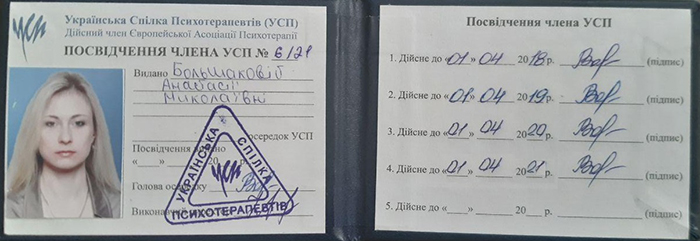 Українська Спілка Психотерапевтів (УСП)
Дійсний член Європейської Асоціації Психотерапії
ПОСВІДЧЕННЯ ЧЛЕНА УСП № 6/21
Видано Большаковій
Анастасії
Миколаївні
осередок УСП
Посвідчення видано
«___» ______ 20 р.
Голова осередку
Виконавчий
УКРАЇНСЬКА СПІЛКА ПСИХОТЕРАПЕВТІВ
УСП
Посвідчення члена УСП
1. Дійсне до «01» 04 2018 р. (підпис)
2. Дійсне до «01» 04 2019 р. (підпис)
3. Дійсне до «01» 04 2020 р. (підпис)
4. Дійсне до «01» 04 2021 р. (підпис)
5. Дійсне до «___» ______ 20__ р. (підпис)